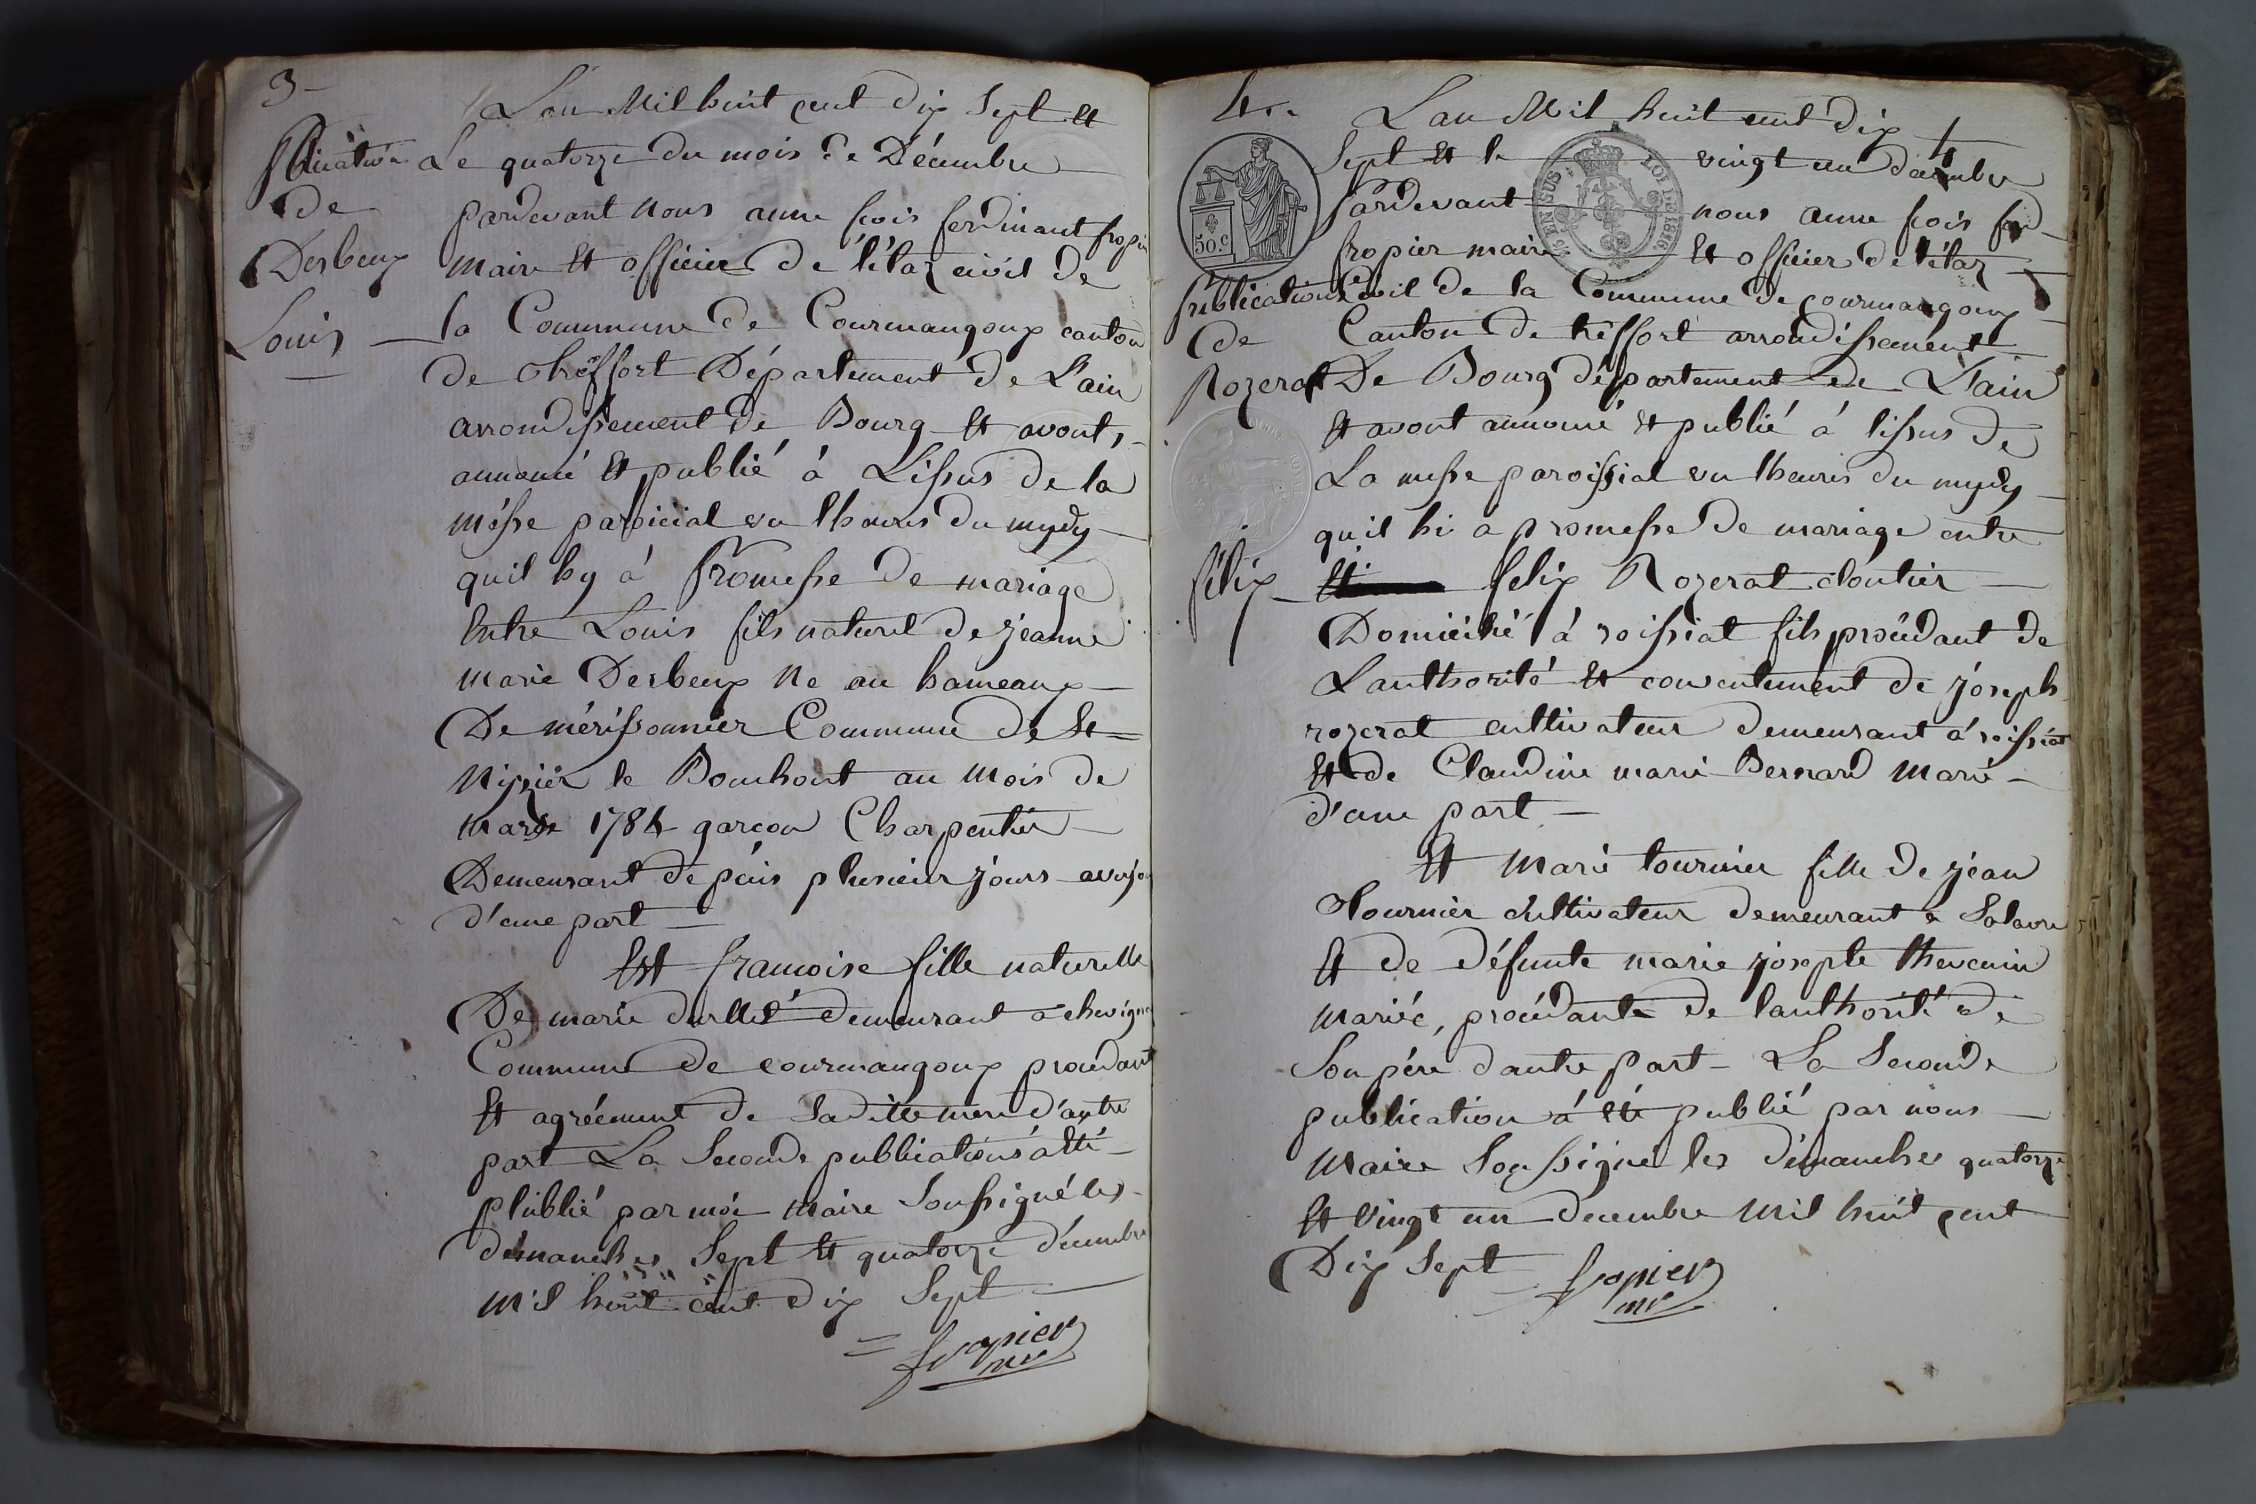 3-
L'an Mil huit cent dix Sept et
Publication
Le quatorze du mois de Décembre
de
pardevant nous anne fcois ferdinant fropier
Desbeux
Maire et officier de l'étaz civil de
Louis
la Commune de Courmangoux canton
de thréffort Département de L'ain
arrondissement de Bourg et avont
annoncé et publié á L'issus de la
mésse paroicial vu lheures du mydy
quil hy á Promesse de mariage
Entre Louis fils naturel de jeanne
Marie Desbeux Ne au hameaux
De mérissonnier Commune de St
Nizier le Bouchout au mois de
mars 1784 garçon Charpentier
Demeurant depuis plusieur jours
d'une part
Est francoise fille naturelle
De marie durllet demeurant a chevigna
Commune de courmangoux procédant
Et agréement de saditte mere d'autre
part La Seconde publications á été
plublié par moi maire soussigné les
démanches Sept et quatorze décembre
Mil huit cent dix Sept
fropier
mr
4e
L'an Mil huit cent dix
Sept et le vingt un décembre
Pardevant nous anne fcois ferd
fropier maire Et officier de l'étaz
50.c
T EN SUS
LOI DE 1816
publications Civil de la Commune de courmangoux
de
Canton de tréffort arrondissement
Rozerat
De Bourg département de L'ain
Et avont annoncé et publié á lissus de
La messe paroissial vu lheures du mydy
quil hi a promesse de mariage entre
félix
felix Rozerat cloutier
Domicilié á roissiat fils procédant de
Lauthorité Et consentement de joseph
rozerat cultivateur demeurant á roissiat
Et de Claudine marie Bernard marié
d'une part
Et Marie tournier fille de jéan
Tournier cultivateur demeurant a Salavre
Et de défunte marie josepte thevenin
Mariée, procédante de lauthorité de
Son pére dautre Part - La Seconde
publication á été publié par nous
Maire Soussigné les démanches quatorze
Et vingt un decembre Mil huit cent
Dix Sept
fropier
mr